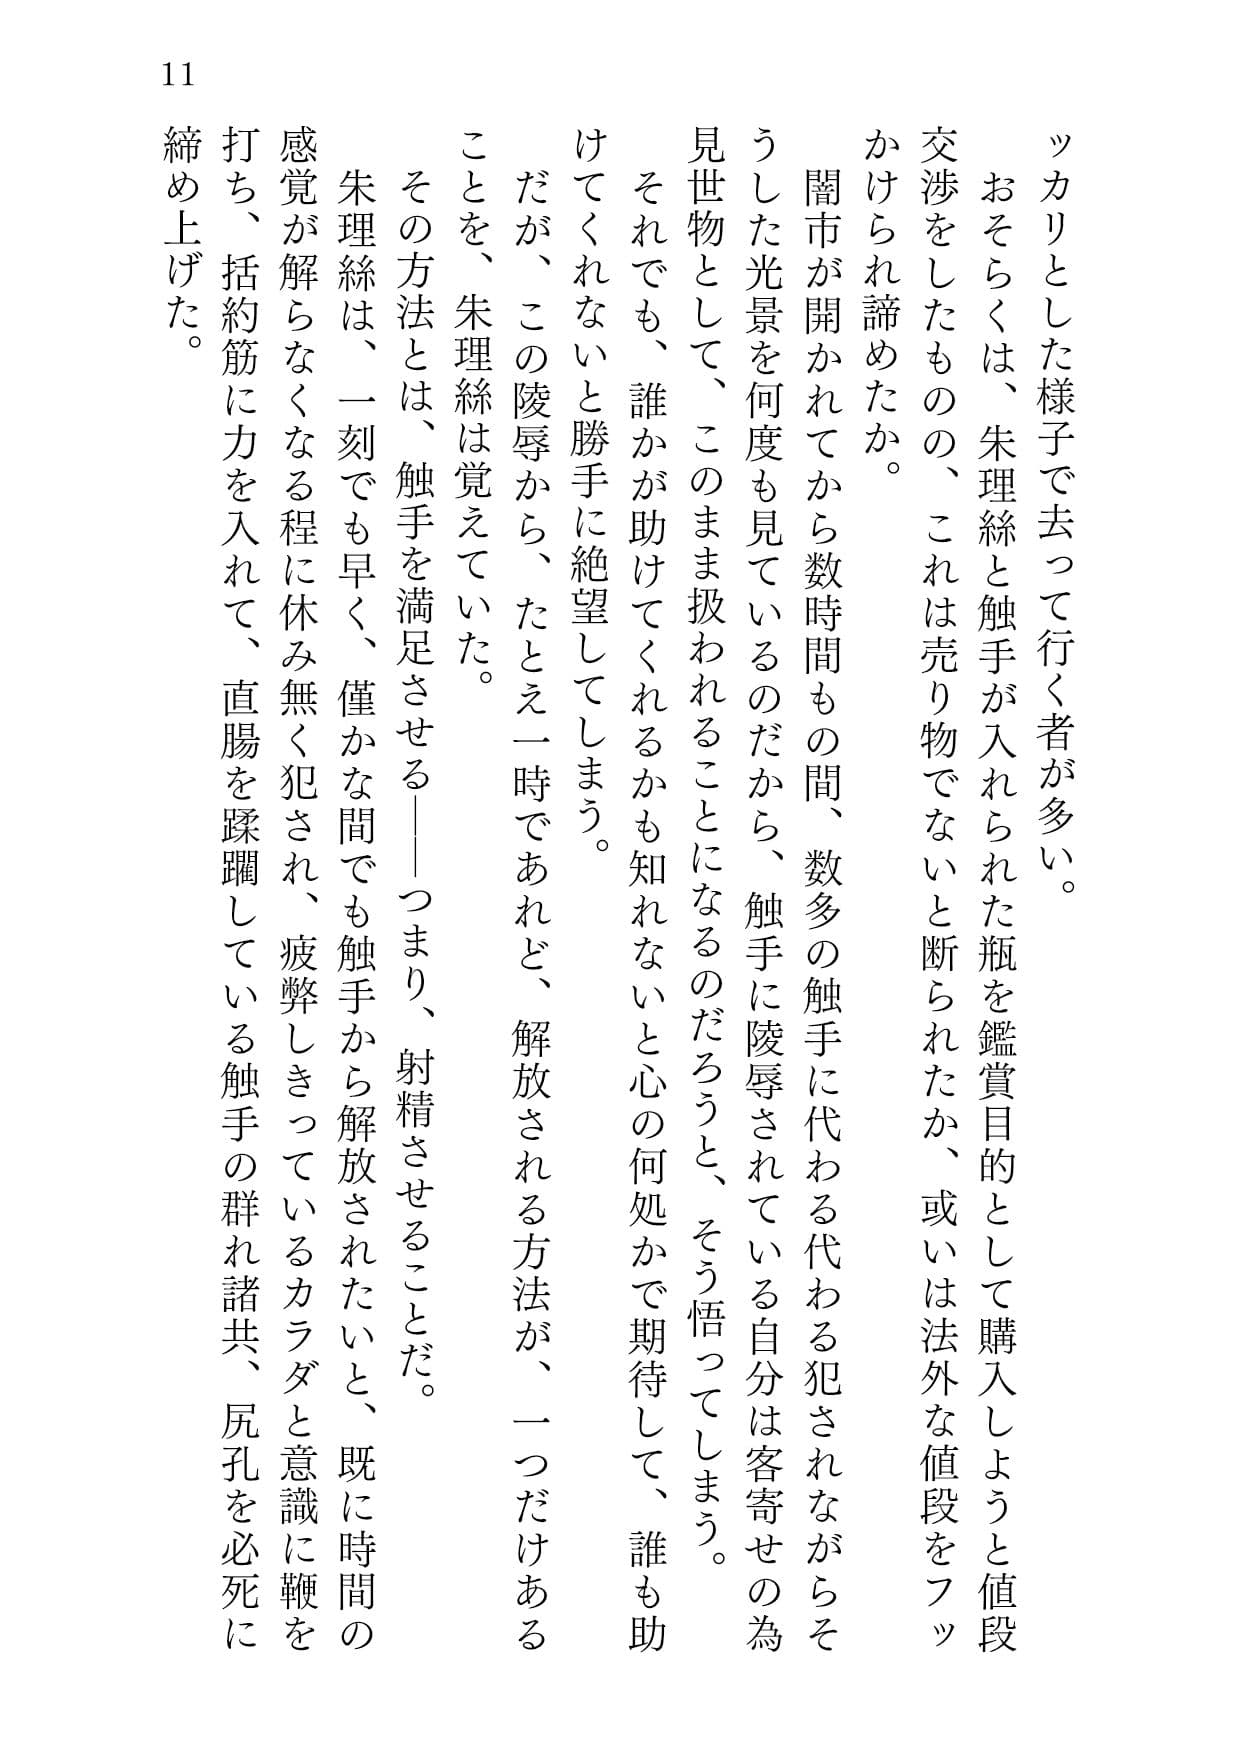 ッカリとした様子で去って行く者が多い。
おそらくは、朱理絲と触手が入れられた瓶を鑑賞目的として購入しようと値段
交渉をしたものの、これは売り物でないと断られたか、或いは法外な値段をフッ
かけられ諦めたか。
闇市が開かれてから数時間もの間、数多の触手に代わる代わる犯されながらそ
うした光景を何度も見ているのだから、触手に陵辱されている自分は客寄せの為
見世物として、このまま扱われることになるのだろうと、そう悟ってしまう。
それでも、誰かが助けてくれるかも知れないと心の何処かで期待して、誰も助
けてくれないと勝手に絶望してしまう。
だが、この陵辱から、たとえ一時であれど、解放される方法が、一つだけある
ことを、朱理絲は覚えていた。
その方法とは、触手を満足させる――つまり、射精させることだ。
朱理絲は、一刻でも早く、僅かな間でも触手から解放されたいと、既に時間の
感覚が解らなくなる程に休み無く犯され、疲弊しきっているカラダと意識に鞭を
打ち、括約筋に力を入れて、直腸を蹂躙している触手の群れ諸共、尻孔を必死に
締め上げた。
11